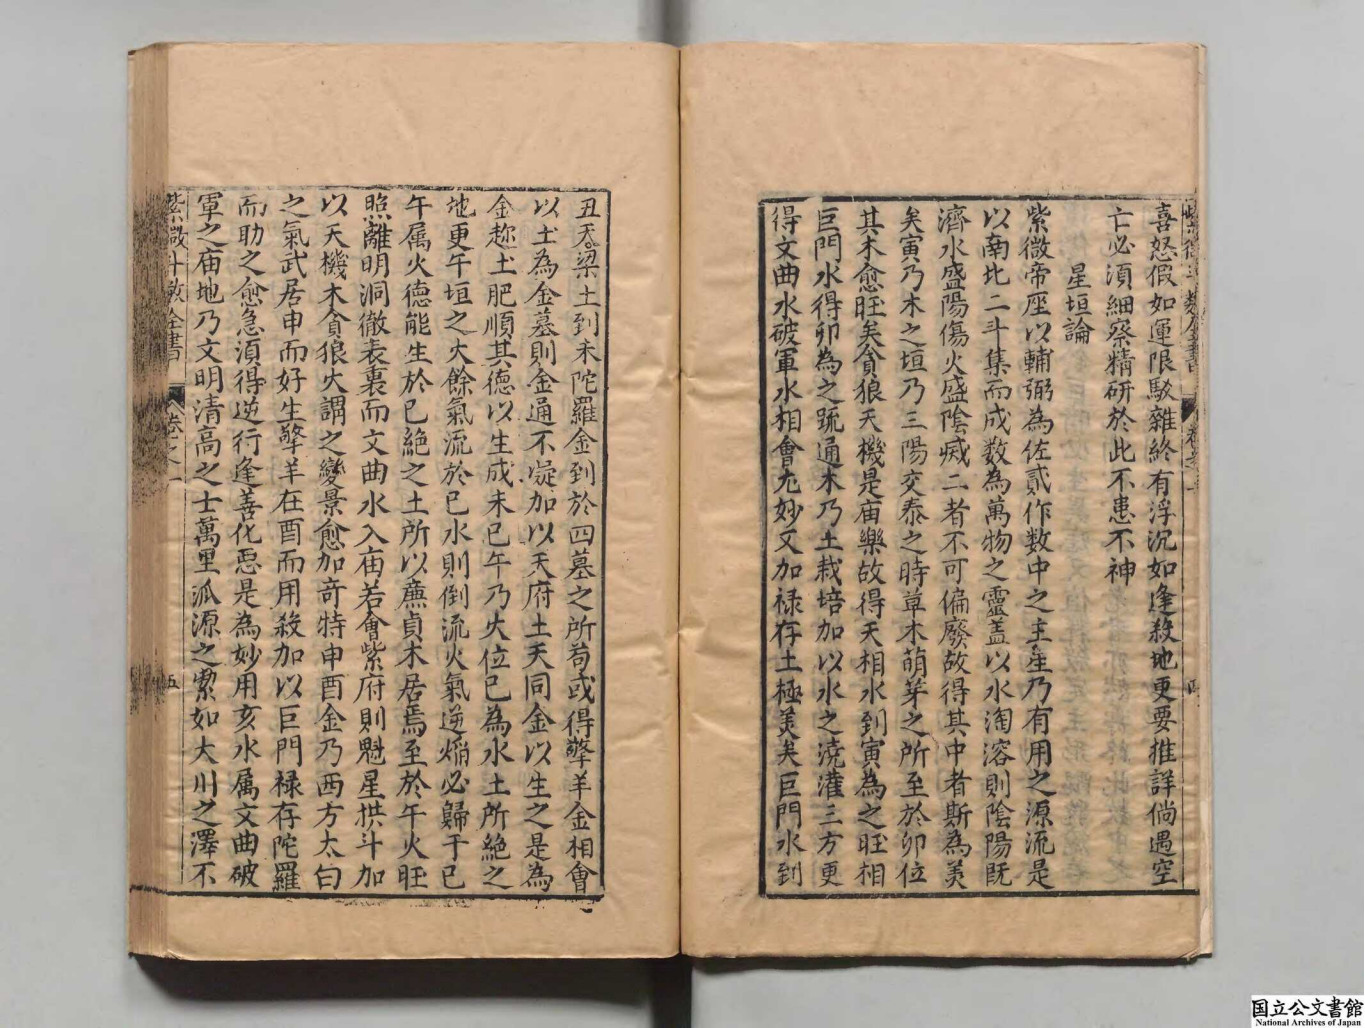 喜怒假如運限駁雜終有浮沉如逢殺地更要推詳倘遇空
亡必須細察精研於此不患不神
星垣論
紫微帝座以輔弼為佐貳作数中之主星乃有用之源流是
以南北二斗集而成数為萬物之靈盖以水淘溶則陰陽既
濟水盛陽傷火盛陰滅二者不可偏廢故得其中者斯為美
矣寅乃木之垣乃三陽交泰之時草木萌芽之所至於卯位
其木愈旺矣貪狼天機是庙樂故得天相水到寅為之旺相
巨門水得卯為之䟽通木乃土栽培加以水之澆灌三方更
得文曲水破軍水相會尤妙又加禄存土極美矣巨門水到
丑天梁土到未陀羅金到於四墓之所苟或得擎羊金相會
以土為金墓則金通不凝加以天府土天同金以生之是為
金趂土肥順其德以生成未巳午乃火位巳為水土所絶之
地更午垣之火餘氣流於巳水則倒流火氣逆焰必歸于巳
午属火德能生於巳絶之土所以亷貞木居焉至於午火旺
照離明洞徹表裏而文曲水入庙若會紫府則魁星拱斗加
以天機木貪狼火謂之變景愈加奇特申酉金乃西方太白
之氣武居申而好生擎羊在酉而用殺加以巨門禄存陀羅
而助之愈急湏得逆行逢善化惡是為妙用亥水属文曲破
軍之庙地乃文明清高之士萬里派源之潔如大川之澤不
紫微斗数全書 卷之一 五
国立公文書館
National Archives of Japan